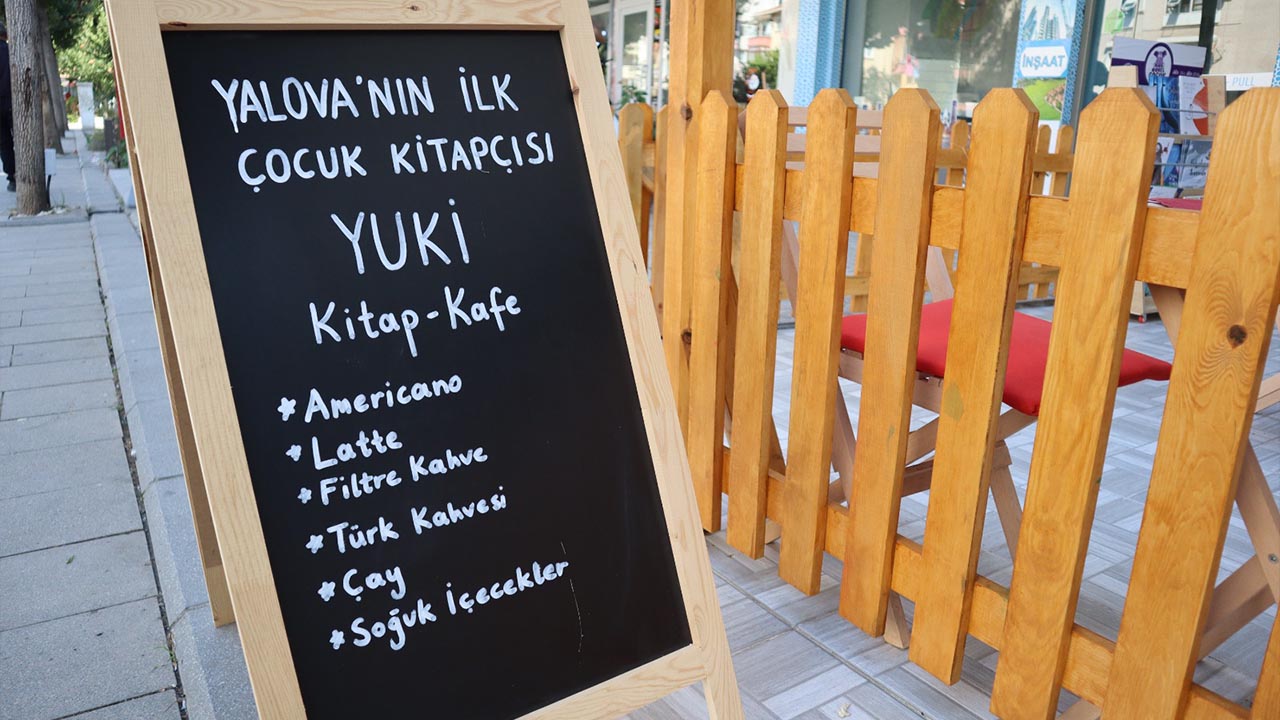 YALOVA'NIN İLK
ÇOCUK KİTAPÇISI
YUKİ
Kitap-Kafe
* Americano
* Latte
* Filtre Kahve
* Türk Kahvesi
* Çay
* Soğuk İçecekler
İNŞAAT
PULL